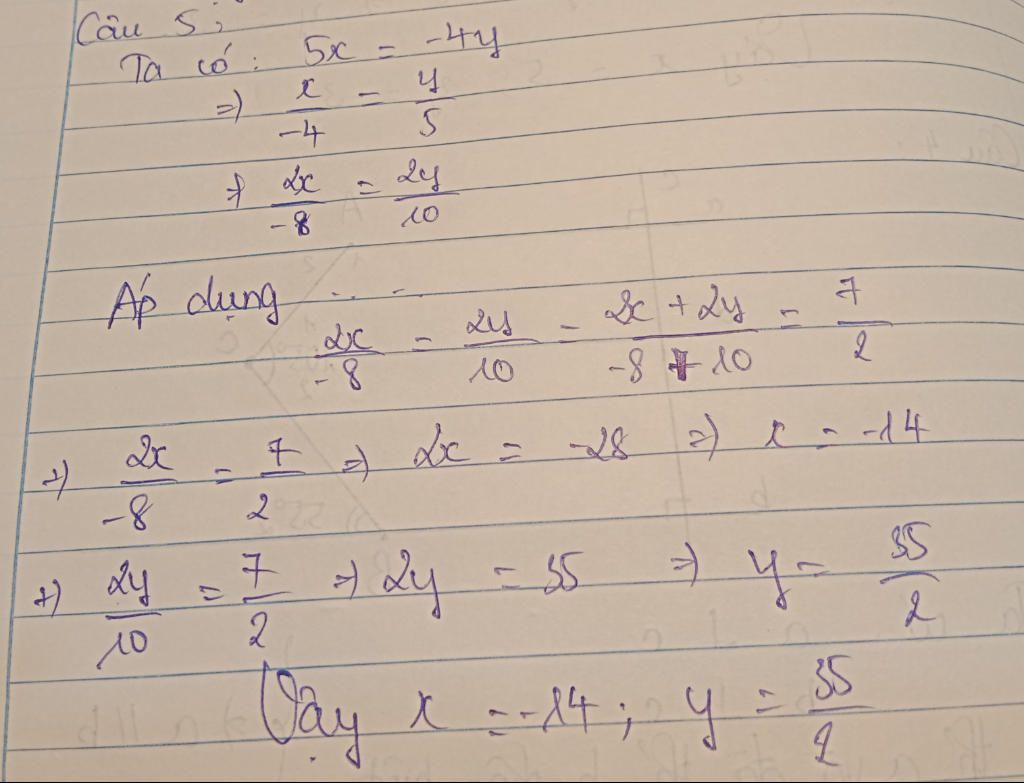 Câu 5;
Ta có: 5x = -4y
=) x/-4 = y/5
=) 2x/-8 = 2y/10
Áp dụng ....
2x/-8 = 2y/10 = 2x + 2y/-8 + 10 = 7/2
+) 2x/-8 = 7/2 =) 2x = -28 =) x = -14
+) 2y/10 = 7/2 =) 2y = 35 =) y = 35/2
Vậy x = -14; y = 35/2